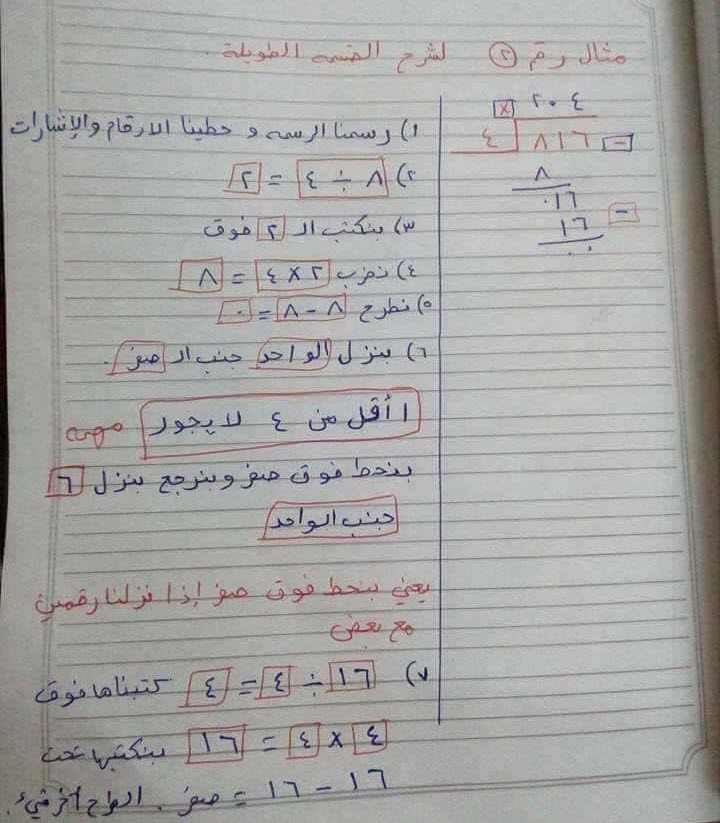 مثال رقم ٢ لشرح القسمه الطويلة
٢٠٤ ×
٤ ٨١٦ -
٨
٠١٦
١٦ -
٠٠
١) رسمنا الرسمه و حطينا الارقام والإشارات
٢) ٨ ÷ ٤ = ٢
٣) بنكتب الـ ٢ فوق
٤) نضرب ٢ × ٤ = ٨
٥) نطرح ٨ - ٨ = ٠
٦) بنزل الواحد جنب الـ صفر.
١ أقل من ٤ لا يجوز مهمه
بنحط فوق صفر وبنرجع بنزل ٦
جنب الواحد
يعني بنحط فوق صفر إذا نزلنا رقمين
مع بعض
٧) ١٦ ÷ ٤ = ٤ كتبناها فوق
٤ × ٤ = ١٦ بنكتبها تحت
١٦ - ١٦ = صفر.